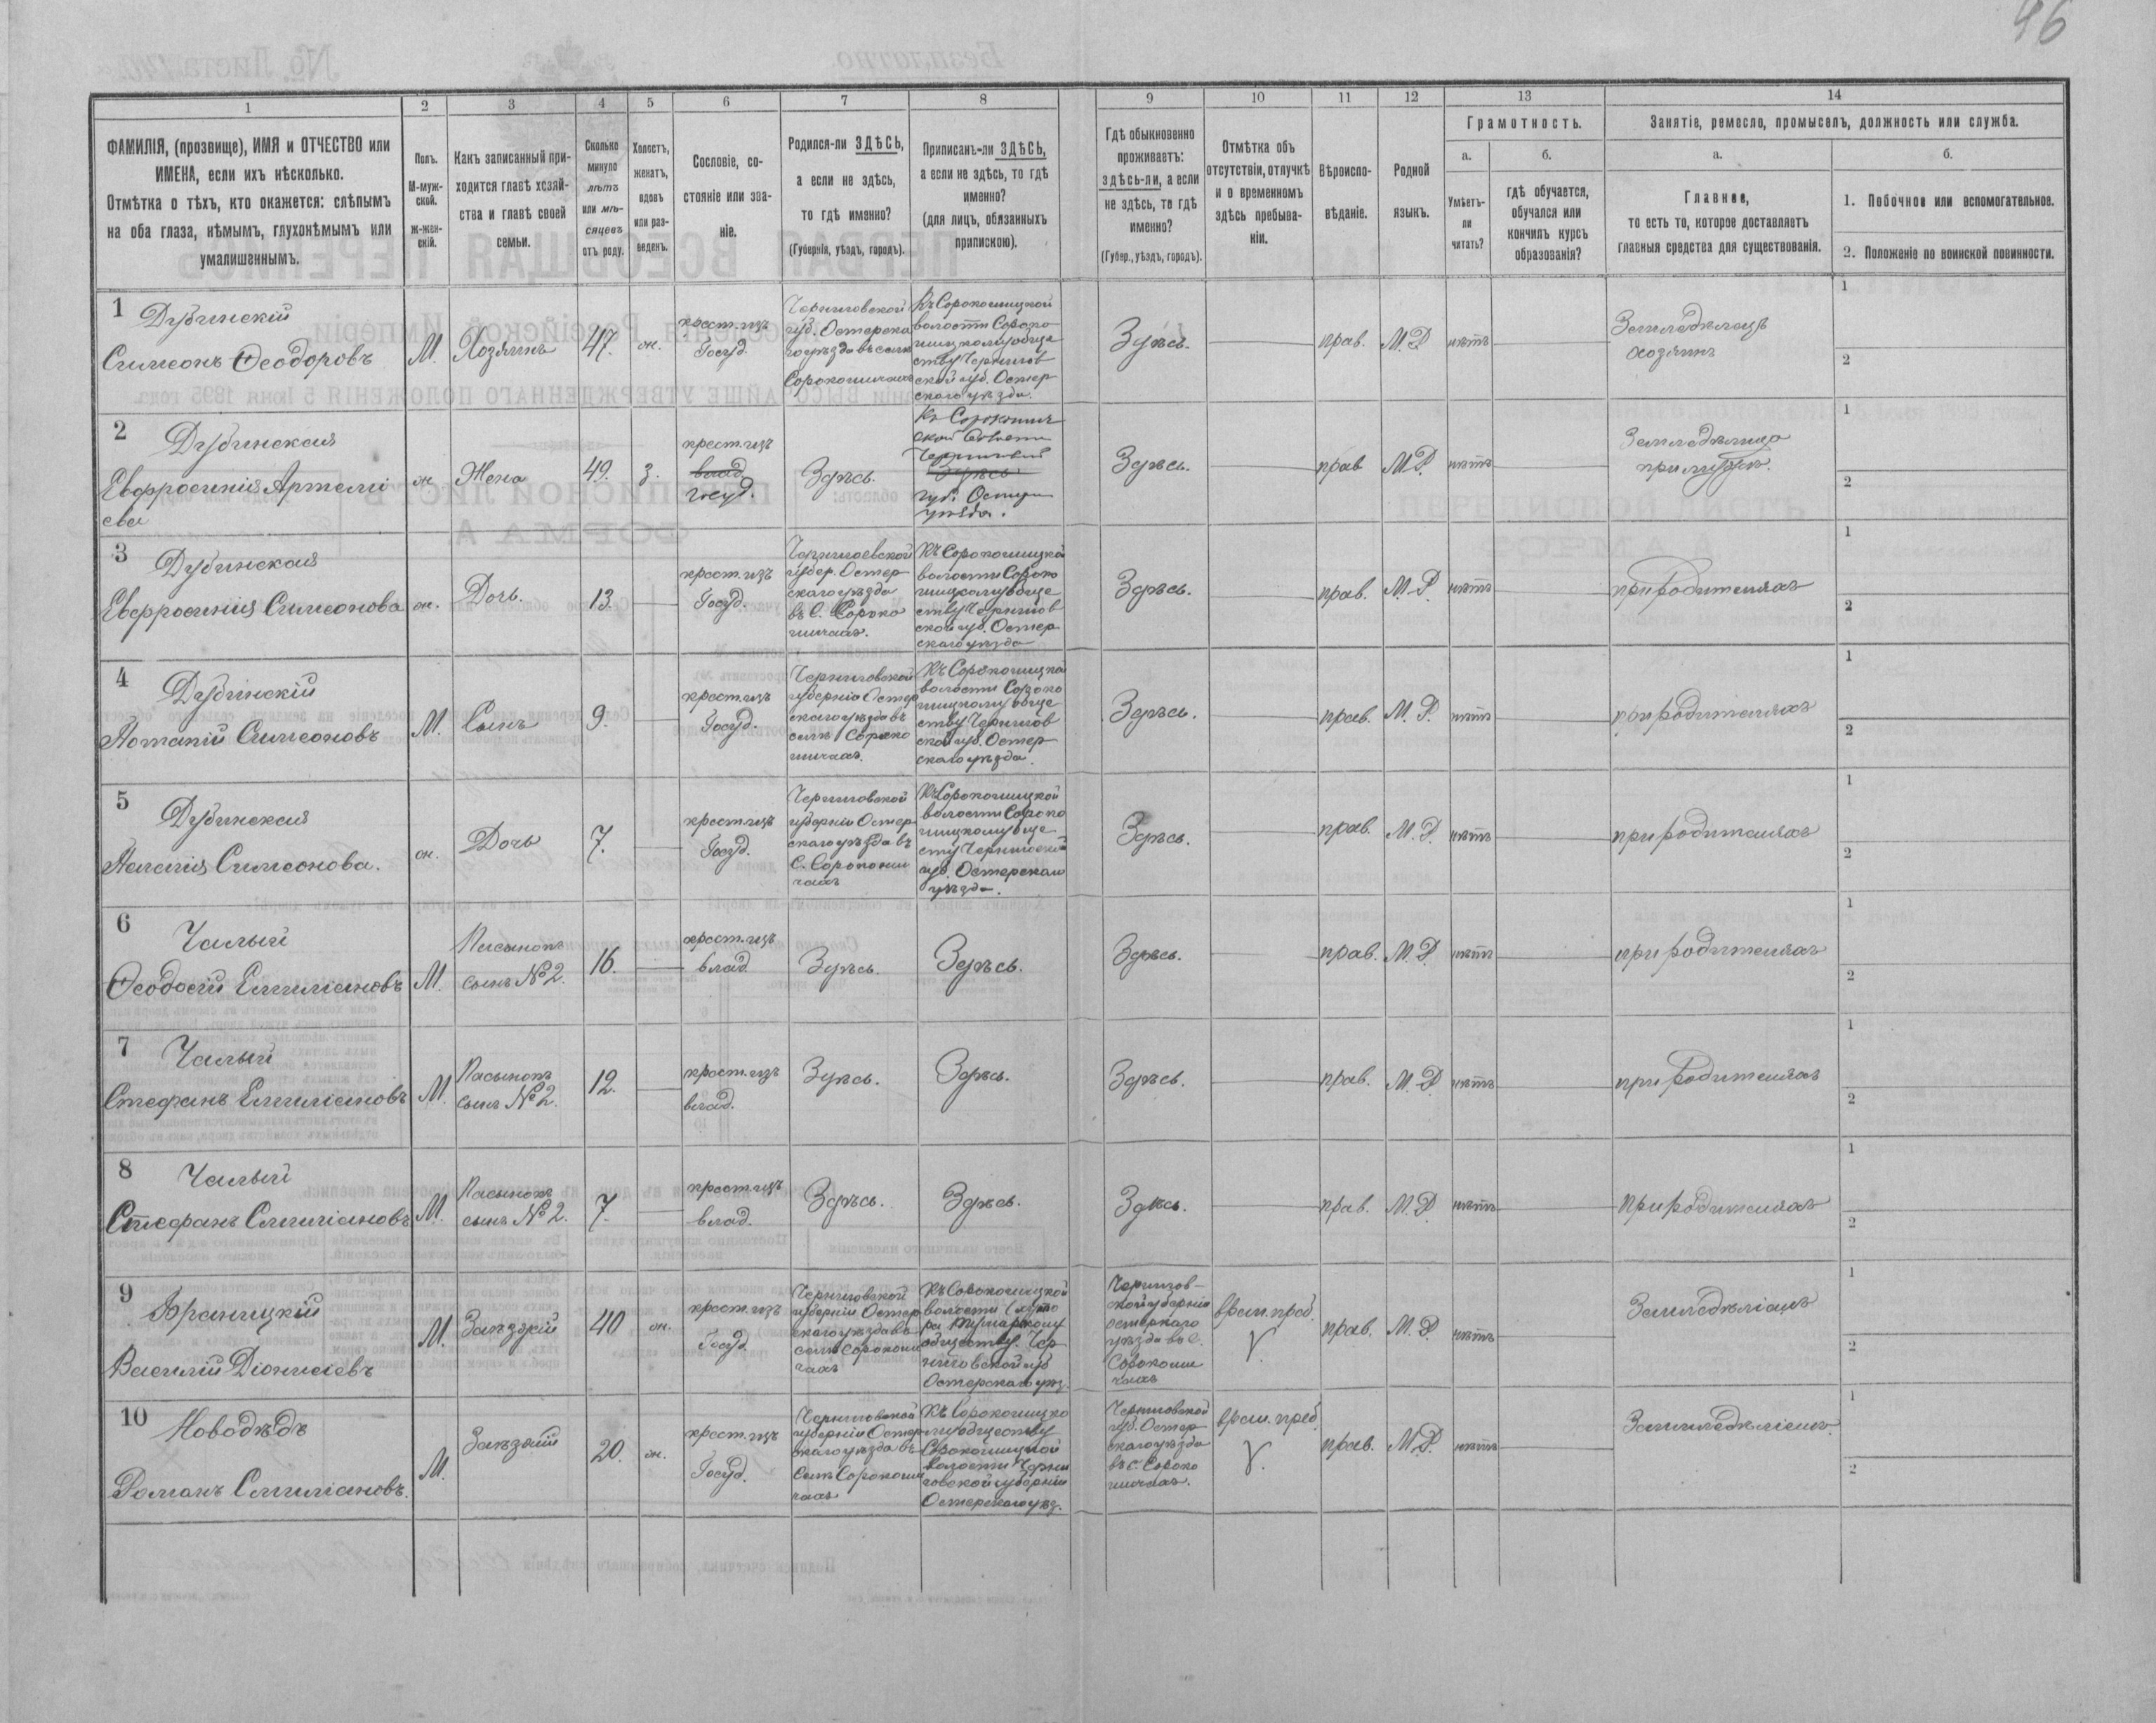 46
1 2 3 4 5 6 7 8 9 10 11 12 13 14
ФАМИЛІЯ, (прозвище), ИМЯ и ОТЧЕСТВО или
ИМЕНА, если ихъ нѣсколько.
Отмѣтка о тѣхъ, кто окажется: слѣпымъ
на оба глаза, нѣмымъ, глухонѣмымъ или
умалишеннымъ.
Полъ.
М-муж-
ской.
Ж-жен-
скій.
Какъ записанный при-
ходится главѣ хозяй-
ства и главѣ своей
семьи.
Сколько
минуло
лѣтъ
или мѣ-
сяцевъ
отъ роду.
Холостъ,
женатъ,
вдовъ
или раз-
веденъ.
Сословіе, со-
стояніе или зва-
ніе.
Родился-ли ЗДѢСЬ,
а если не здѣсь,
то гдѣ именно?
(Губернія, уѣздъ, городъ).
Приписанъ-ли ЗДѢСЬ,
а если не здѣсь, то гдѣ
именно?
(для лицъ, обязанныхъ
припискою).
Гдѣ обыкновенно
проживаетъ:
здѣсь-ли, а если
не здѣсь, то гдѣ
именно?
(Губер., уѣздъ, городъ).
Отмѣтка объ
отсутствіи, отлучкѣ
и о временномъ
здѣсь пребыва-
ніи.
Вѣроиспо-
вѣданіе.
Родной
языкъ.
Грамотность.
а.
Умѣетъ-
ли
читать?
б.
гдѣ обучается,
обучался или
кончилъ курсъ
образованія?
Занятіе, ремесло, промыселъ, должность или служба.
а.
Главное,
то есть то, которое доставляетъ
главныя средства для существованія.
б.
1. Побочное или вспомогательное.
2. Положеніе по воинской повинности.
1 Дубинскій
Симеонъ Ѳеодоровъ
М. Хозяинъ 47. ж.
крест. изъ
Госуд.
Черниговской
губ. Остерска
го уѣзда въ селѣ
Сорокошичахъ
Къ Сорокошицкой
волости Сороко
шицкому обще
ству Чернигов
ской губ. Остер
скаго уѣзда.
Здѣсь. прав. М.Р. нѣтъ
Земледѣлецъ
хозяинъ
1
2
2 Дубинская
Евфросинія Артемі
ева
ж Жена 49. З.
крест. изъ
влад.
госуд.
Здѣсь.
Къ Сорокошиц
кой волости
Здѣсь
губ. Остерск
уѣзда.
Здѣсь. прав М.Р. нѣтъ
Земледѣлица
при мужѣ.
1
2
3 Дубинская
Евфросинія Симеонова
ж. Дочь. 13.
крест. изъ
Госуд.
Черниговской
губер. Остер
скаго уѣзда
въ С. Сороко
шичахъ.
Къ Сорокошицкой
волости Сороко
шицкому обще
ству Чернигов
ской губ. Остер
скаго уѣзда
Здѣсь. прав. М.Р. нѣтъ
при родителяхъ
1
2
4 Дубинскій
Потапій Симеоновъ
М. Сынъ 9.
крест. изъ
Госуд.
Черниговской
губерніи Остер
скаго уѣзда въ
селѣ Сороко
шичахъ.
Къ Сорокошицкой
волости Сороко
шицкому обще
ству Чернигов
ской губ. Остер
скаго уѣзда.
Здѣсь. прав. М.Р. нѣтъ
при родителяхъ
1
2
5 Дубинская
Пелагія Симеонова.
ж. Дочь 7.
крест. изъ
Госуд.
Черниговской
губерніи Остер
скаго уѣзда въ
С. Сорокоши
чахъ
Къ Сорокошицкой
волости Сороко
шицкому обще
ству Черниговской
губ. Остерскаго
уѣзда.
Здѣсь. прав. М.Р. нѣтъ
при родителяхъ
1
2
6 Чалый
Ѳеодосій Емиліановъ
М.
Пасынокъ
сынъ №2.
16.
крест. изъ
влад.
Здѣсь. Здѣсь. Здѣсь. прав. М.Р. нѣтъ
при родителяхъ
1
2
7 Чалый
Стефанъ Емиліановъ
М.
Пасынокъ
сынъ №2.
12.
крест. изъ
влад.
Здѣсь. Здѣсь. Здѣсь. прав. М.Р. нѣтъ
при родителяхъ
1
2
8 Чалый
Стефанъ Емиліановъ
М.
Пасынокъ
сынъ №2.
7.
крест. изъ
влад.
Здѣсь. Здѣсь. Здѣсь. прав. М.Р. нѣтъ
при родителяхъ
1
2
9
Василій Діонисіевъ
М. Заѣзжій 40 ж.
крест. изъ
Госуд.
Черниговской
губерніи Остер
скаго уѣзда въ
селѣ Сорокоши
чахъ
Къ Сорокошицкой
волости
обществу Чер
ниговской губ
Остерскаго уѣз.
Чернигов-
ской губерніи
Остерскаго
уѣзда въ с.
Сорокоши
чахъ
врем. преб.
прав. М.Р. нѣтъ
1
2
10 Новодѣдъ
Романъ Емиліановъ.
М. Заѣзжій 20. ж.
крест. изъ
Госуд.
Черниговской
губерніи Остер
скаго уѣзда въ
Селѣ Сорокоши
чахъ
Къ Сорокошицко
му обществу
Сорокошицкой
волости Черни
говской губерніи
Остерскаго уѣз.
Черниговской
губ. Остер
скаго уѣзда
въ с. Сороко
шичахъ.
врем. преб.
прав. М.Р. нѣтъ
1
2